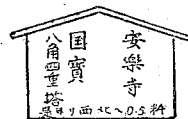 安樂寺
国寶
八角四重塔
是ヨリ西北へ0.5粁